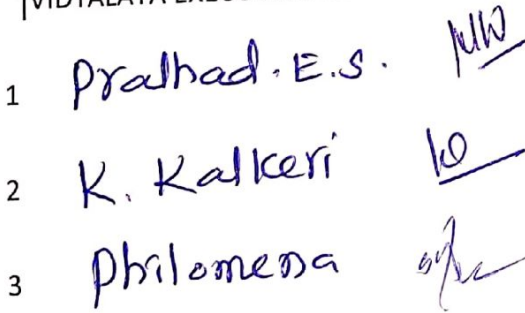 1 Pralhad. E.S.
2 K. Kalkeri
3 Philomena